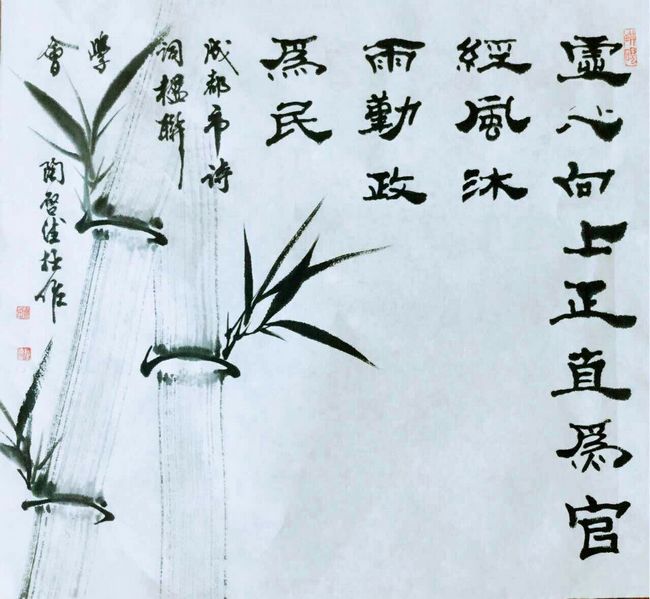 虛心向上正直爲官
經風沐
雨勤政
爲民
成都市诗
词楹聯
學
會
陶 作